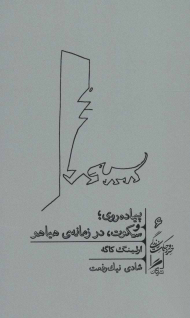 پیاده‌روی؛
و
سکوت، در زمانه‌ی هیاهو
ارلینگ کاگه
شادی نیک‌رفعت
۶